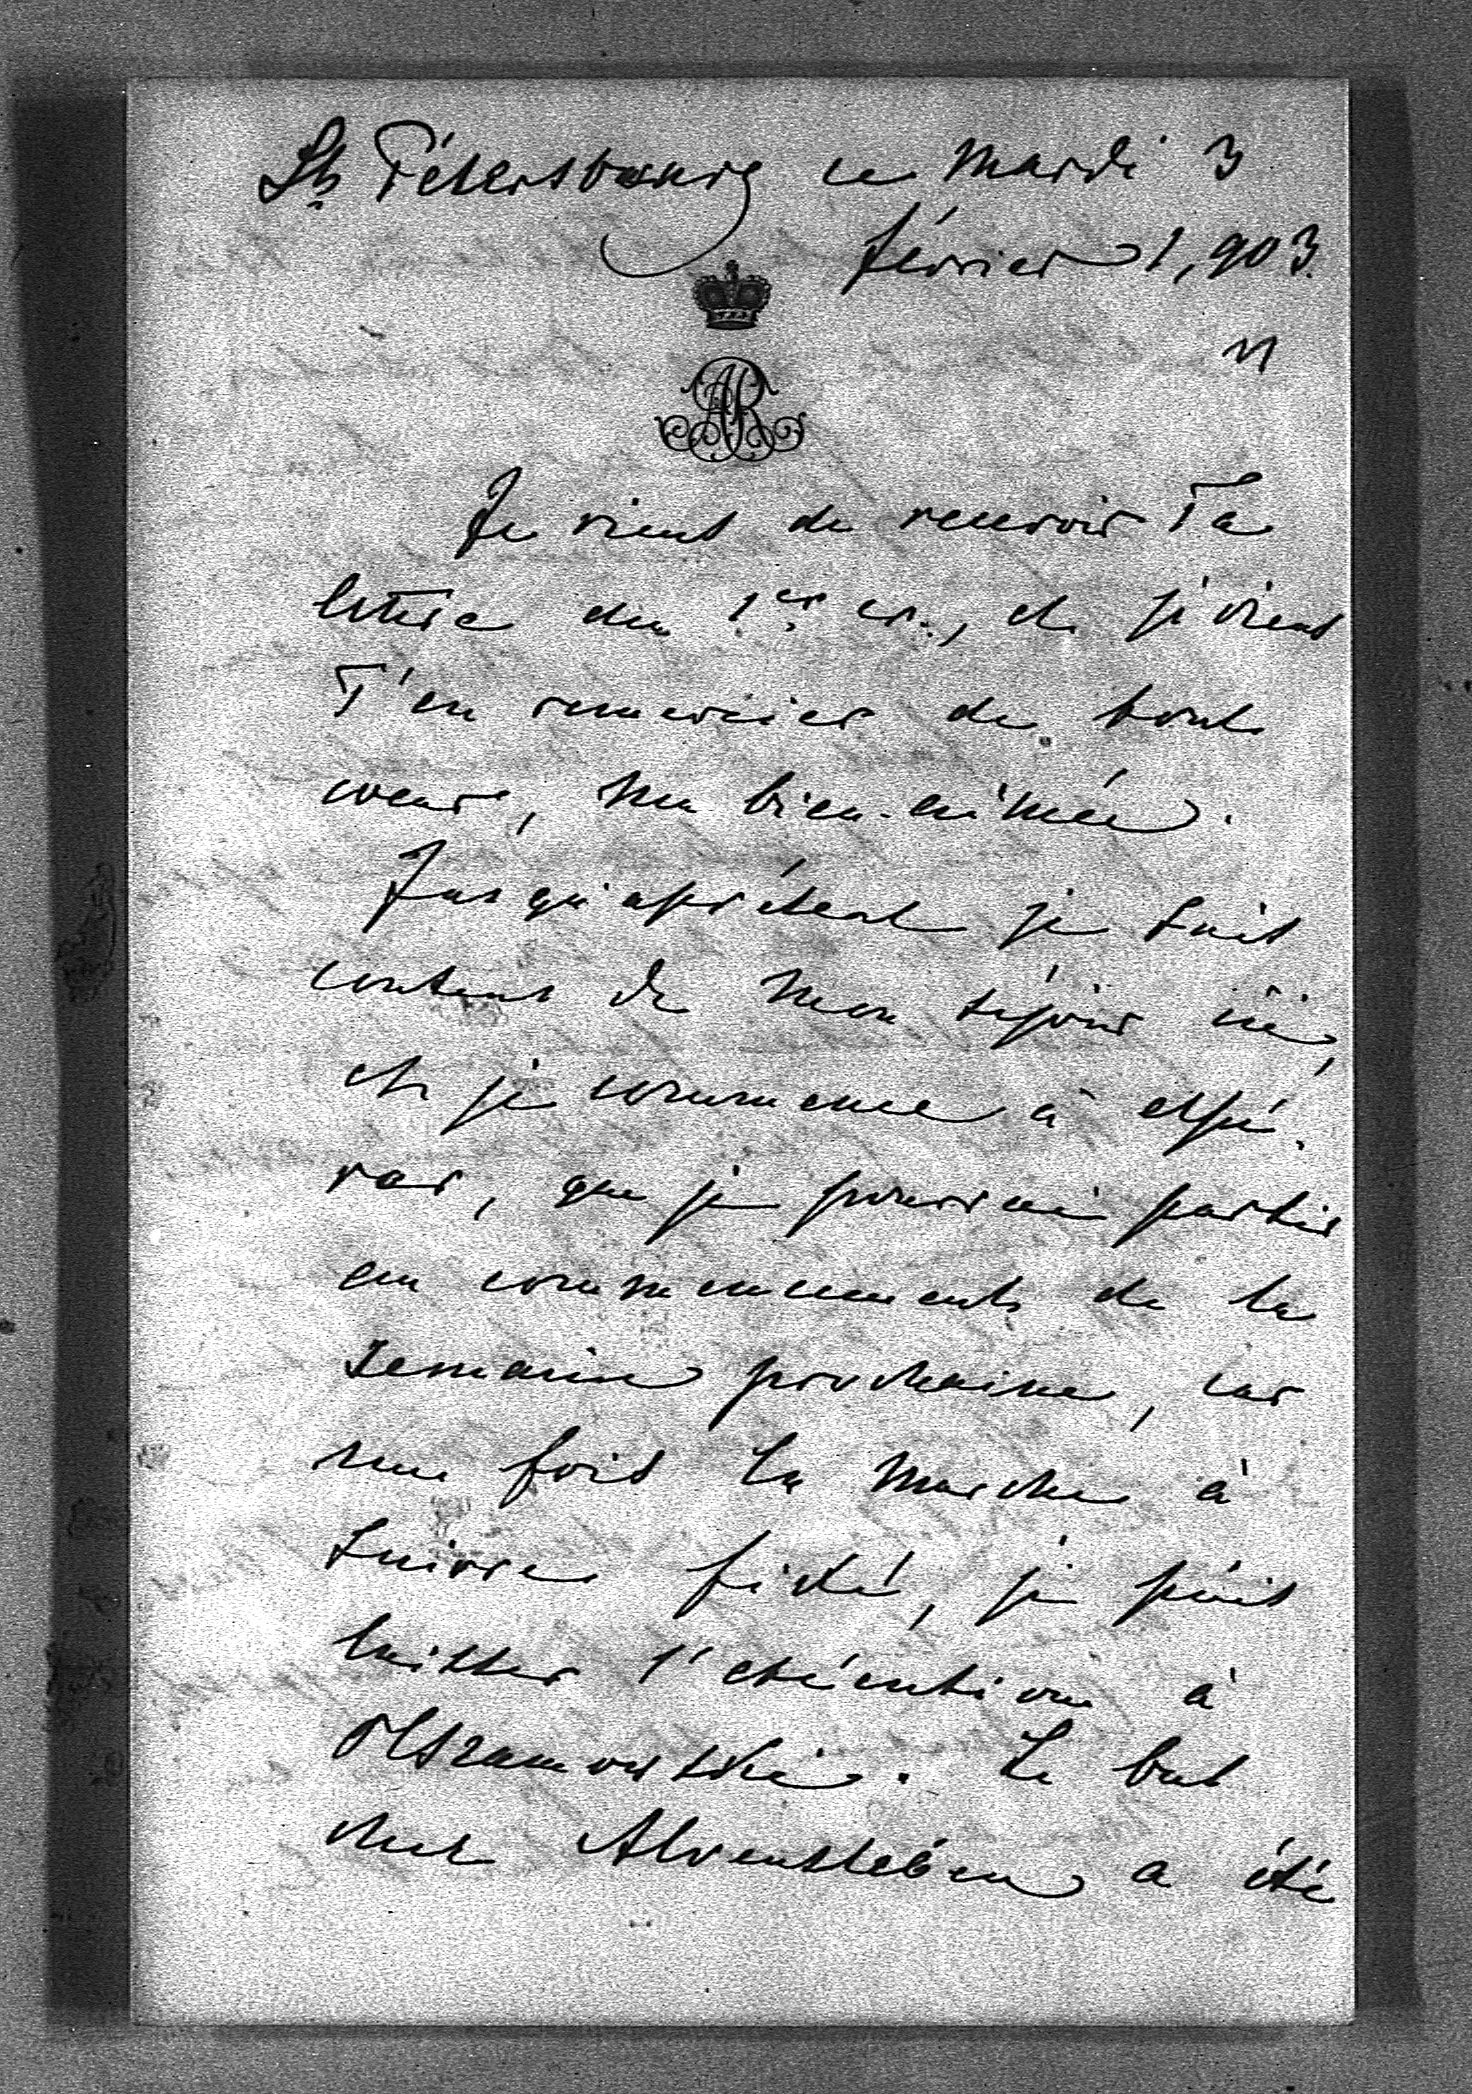 St Pétersbourg ce Mardi 3
février 1,903.
AR
Je viens de recevoir Ta
lettre du 1er cr., et je viens
T'en remercier de tout
coeur, Ma bien-aimée.
Jusqu'aprésent je suis
content de Mon séjour ici,
et je commence à espé-
rer, que je pourrai partir
au commencement de la
semaine prochaine, car
une fois la marche à
suivre fixée, je puis
laisser l'exécution à
Olszamowski. Le bal
chez Alvensleben a été